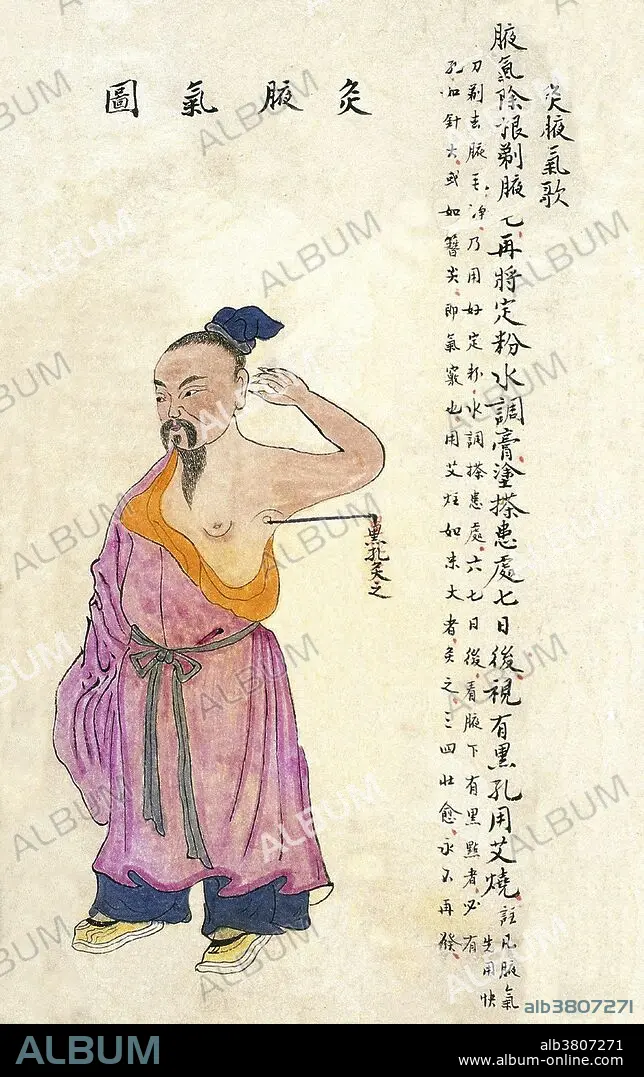 灸腋氣歌
腋氣除根剃腋毛再將定粉水調膏塗搽患處七日後視有黑孔用艾燒 註凡腋氣先用快
刀剃去腋毛淨乃用好定粉水調搽患處六七日後看腋下有黑點者必有
孔如針大或如簪尖即氣竅也用艾炷如米大者灸之三四壯愈永不再發
灸腋氣圖
黑孔灸之
ALBUM
alb3807271
ALBUM
alb3807271
www.album-online.com